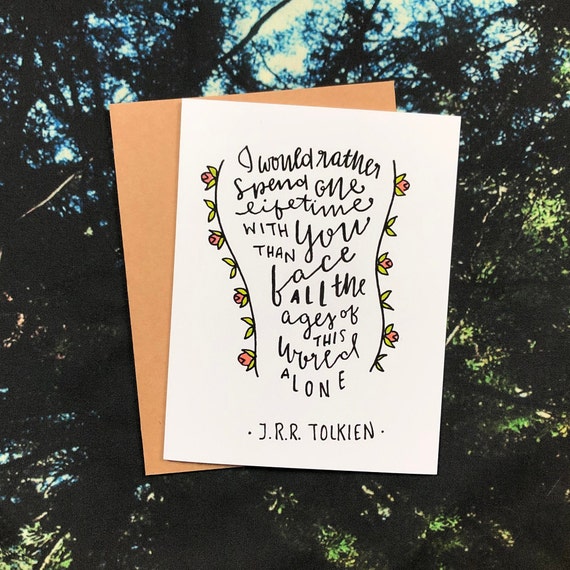 I would rather
spend one
lifetime
WITH you
THAN
face
ALL the
ages of
THIS
World
ALONE
· J.R.R. TOLKIEN ·